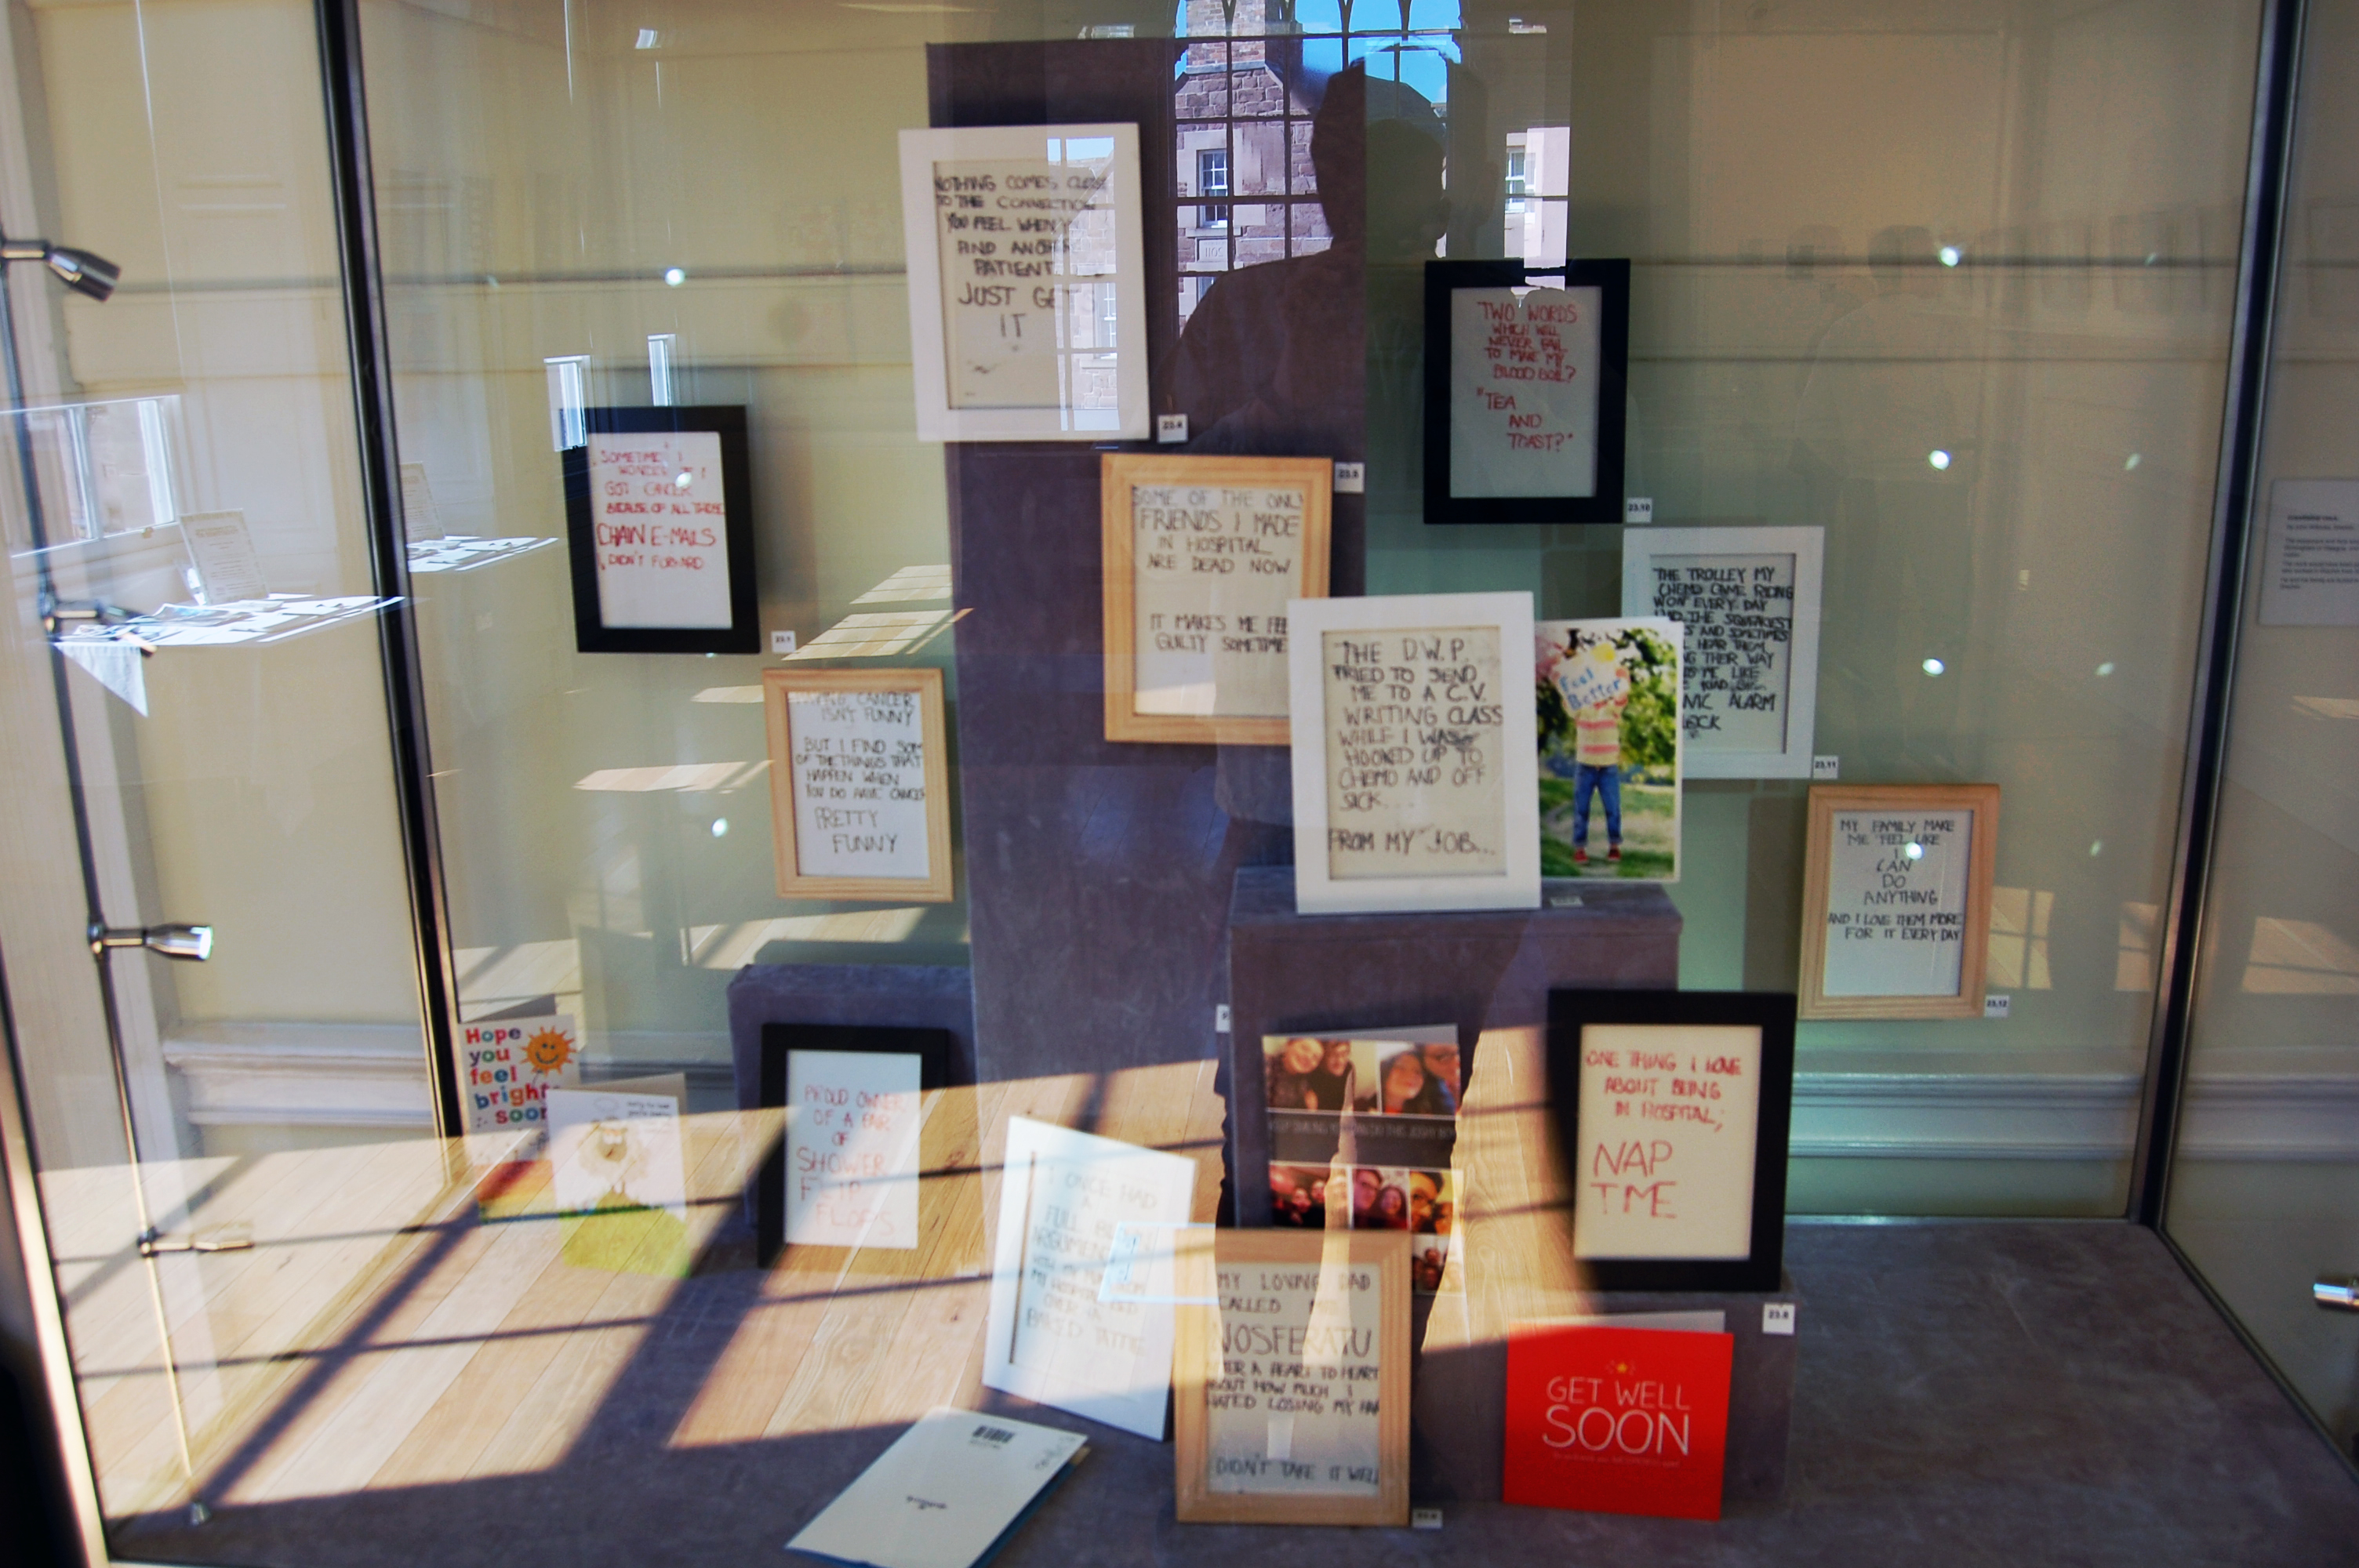 NOTHING COMES CLOSE
TO THE CONNECTION
YOU FEEL WHEN
FIND ANOTHER
PATIENT
JUST GET
IT
23.4
TWO WORDS
WHICH WILL
NEVER FAIL
TO MAKE MY
BLOOD BOIL?
"TEA
AND
TOAST?"
23.10
SOMETIMES I
WONDER IF I
GOT CANCER
BECAUSE OF ALL THESE
CHAIN E-MAILS
I DIDN'T FORWARD
23.1
SOME OF THE ONLY
FRIENDS I MADE
IN HOSPITAL
ARE DEAD NOW
IT MAKES ME FEEL
GUILTY SOMETIMES
THE TROLLEY MY
CHEMO CAME RIDING
WON EVERY DAY
HAD THE SQUEAKIEST
S AND SOMETIMES
L HEAR THEM
NG THER WAY
ME LIKE
ALARM
23.11
THE D.W.P.
TRIED TO SEND
ME TO A C.V.
WRITING CLASS
WHILE I WAS
HOOKED UP TO
CHEMO AND OFF
SICK...
FROM MY JOB...
Feel
Better
CANCER
ISN'T FUNNY
BUT I FIND SOM
OF THE THINGS THAT
HAPPEN WHEN
YOU DO HAVE CANCER
PRETTY
FUNNY
MY FAMILY MAKE
ME FEEL LIKE
I
CAN
DO
ANYTHING
AND I LOVE THEM MORE
FOR IT EVERY DAY
23.12
Hope
you
feel
bright
soon
PROUD OWNER
OF A PAIR
OF
SHOWER
FLIP
FLOPS
I ONCE HAD
A
FULL BLOWN
ARGUMENT
WITH MY MUM FROM
MY HOSPITAL BED
OVER A
BAKED TATTIE
ONE THING I LOVE
ABOUT BEING
IN HOSPITAL;
NAP
TIME
23.8
MY LOVING DAD
CALLED ME
NOSFERATU
AFTER A HEART TO HEART
ABOUT HOW MUCH I
HATED LOSING MY HAI
I DIDN'T TAKE IT WELL
GET WELL
SOON